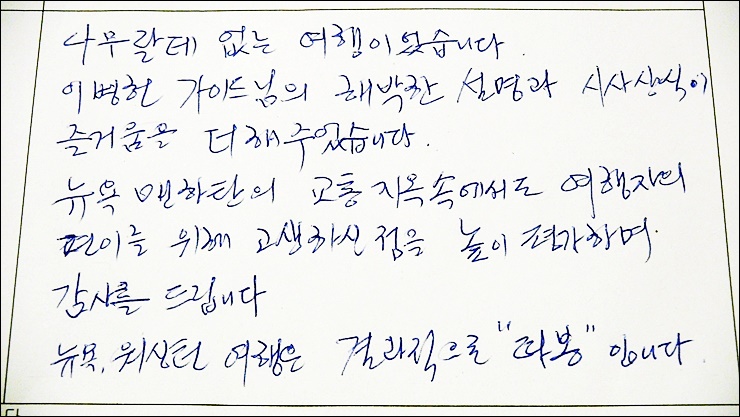 나무랄데 없는 여행이었습니다.
이병헌 가이드님의 해박한 설명과 시사상식이
즐거움을 더해주었습니다.
뉴욕 맨하탄의 교통지옥속에서도 여행자의
편이를 위해 고생하신 점을 높이 평가하며.
감사를 드립니다
뉴욕, 워싱턴 여행은 결과적으로 "따봉" 입니다